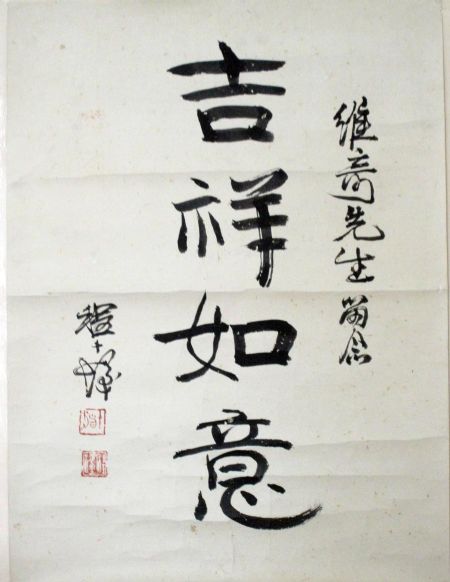 維竒先生留念
吉祥如意
程十髮